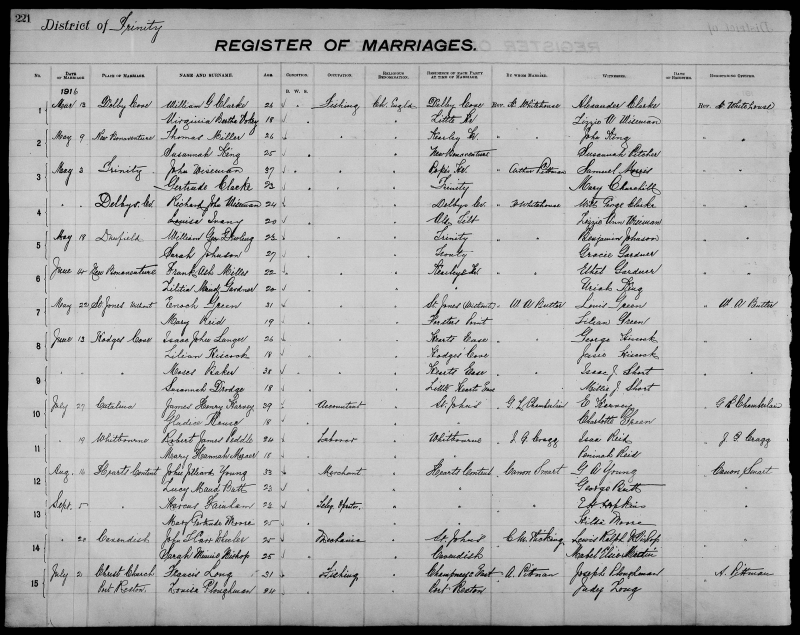 221
District of Trinity
REGISTER OF MARRIAGES.
No. DATE OF MARRIAGE PLACE OF MARRIAGE. NAME AND SURNAME. AGE CONDITION. OCCUPATION. RELIGIOUS DENOMINATION. RESIDENCE OF EACH PARTY AT TIME OF MARRIAGE BY WHOM MARRIED. WITNESSES. DATE OF REGISTRY. OFFICIATING OFFICER.
1916 B. W. S.
1 Mar 13 Delby Cove William G Clarke 26 Fishing Ch. Engld Delby Cove Rev. A Whitehouse Alexander Clarke Rev. A Whitehouse
Virginia Butha 18 " Little Hr Lizzie A Wiseman
2 May 9 New Bonaventure Thomas Miller 26 " " Kearley Hr " " John King
Susannah King 25 " New Bonaventure Susannah Pitcher
3 May 3 Trinity John Wiseman 37 " " Hr. " Arthur Pittman Samuel Morris
Gertrude Clarke 23 " Trinity Mary Churchill
4 " " Delbys Cv. Richard John Wiseman 24 " " Delbys Cv. " A Whitehouse George Clarke
Louisa Ivany 20 " Tilt Lizzie Ann Wiseman
5 May 18 William Geo 23 " " Trinity " " Benjamin Johnson
Sarah Johnson 27 " Trouty Gracie Gardner
6 June 14 New Bonaventure Frank Ash Miller 22 " " Kearleys Hr " " Ethel Gardner
Maud Gardner 20 " " Uriah King
7 May 22 St Jones Without Enoch Green 31 " " St Jones (Without) " W. A. Butler Louis Green " W A Butler
Mary Reid 19 " Fosters Point Lilian Green
8 June 13 Hodges Cove Isaac John Langer 26 " " Hearts Ease " " George Hiscock
Lilian Hiscock 18 " Hodges Cove Hiscock
9 " " " Moses Baker 38 " " Hearts Ease " " Isaac J Short
Susannah Drodge 18 " Little Hearts Ease J Short
10 July 27 Catalina James Henry Kearney 29 Accountant " St. Johns " G. L. Chamberlain E Kearney G B Chamberlain
Gladys House 18 " " Charlotte Green
11 " 19 Whitbourne Robert James Peddle 24 Labourer " Whitbourne " J G Cragg Isaac Reid J G Cragg
Mary Hannah Mercer 18 " " Reid
12 Aug. 16 Hearts Content John Young 33 Merchant " Hearts Content " Canon Smart G A Young Canon Smart
Lucy Maud Butt 23 " " George Butt
13 Sept. 5 " Marcus Farnham 23 " " " " Hopkins
Mary Gertrude Moore 25 " " Moore
14 " 20 Cavendish John 25 Mechanic " St. Johns " Lewis Ralph Bishop
Sarah Minnie Bishop 25 " Cavendish Mabel Martin
15 July 2 Christ Church Francis Long 31 Fishing " Champneys East " A. Pittman Joseph Ploughman A. Pittman
Port Rexton. Louisa Ploughman 24 Port Rexton Judy Long